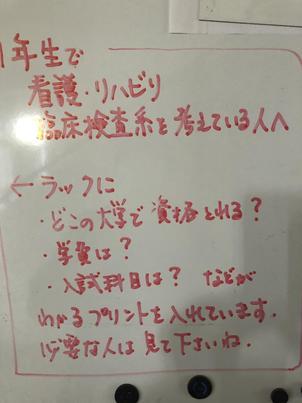 1年生で
看護・リハビリ
臨床検査系を考えている人へ
←ラックに
・どこの大学で資格とれる?
・学費は?
・入試科目は? などが
わかるプリントを入れています.
必要な人は見て下さいね.